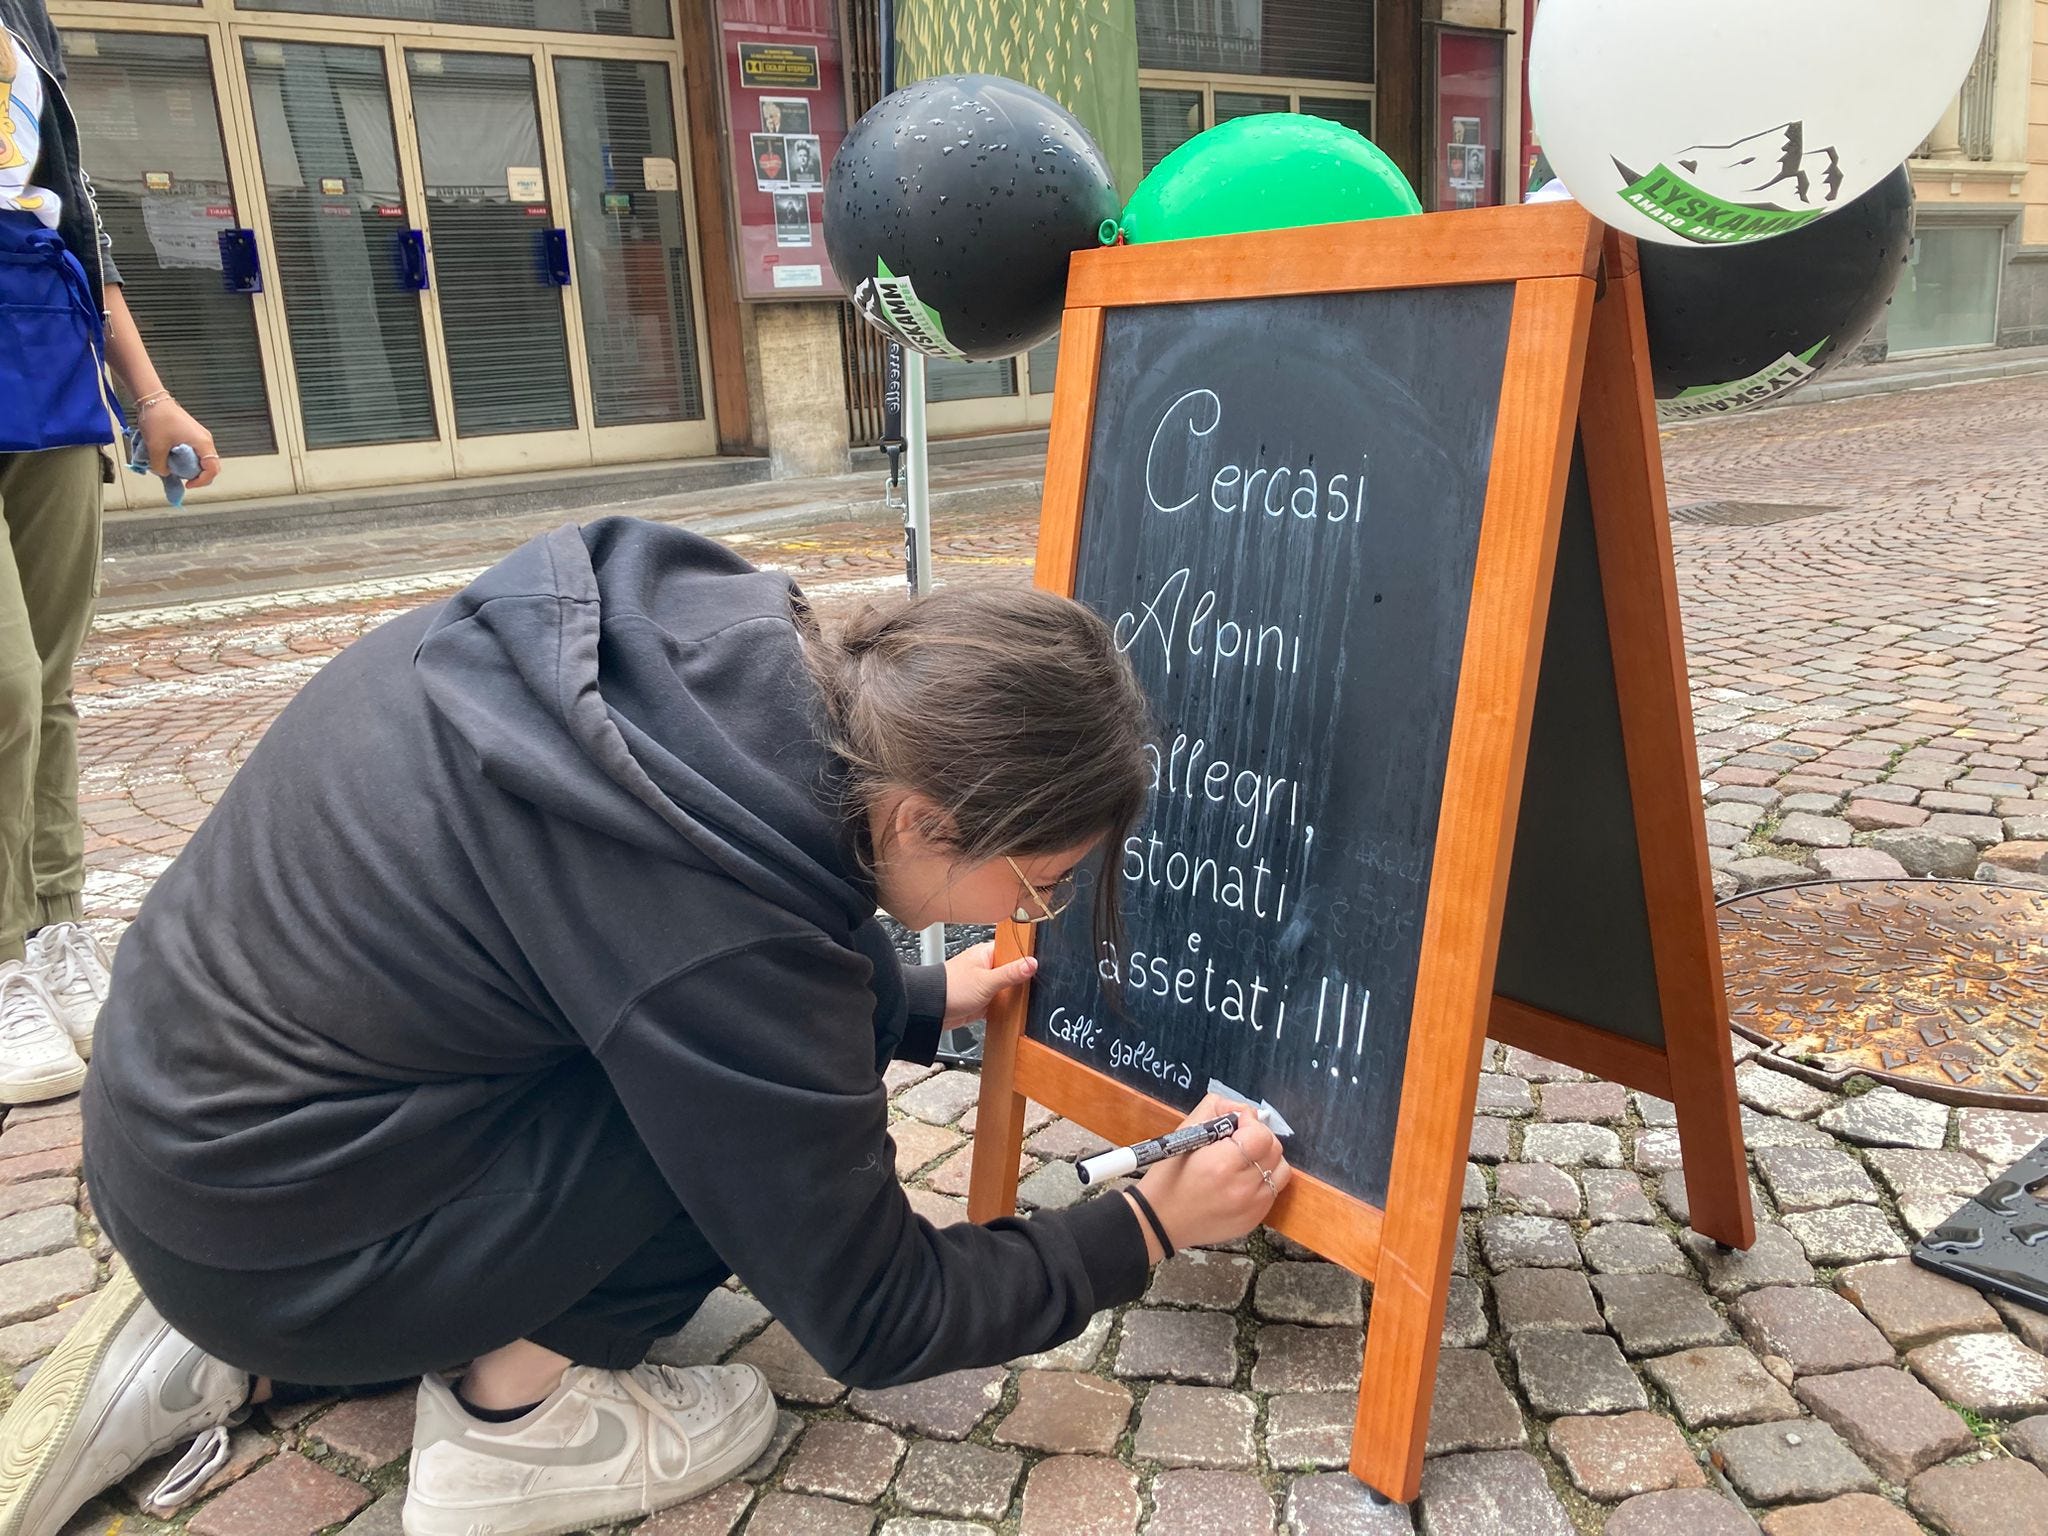 DOLBY STEREO
TIRARE
TIRARE
TIRARE
LYSKAMM
AMARO ALLE
LYSKAMM
ALLE ERBE
LYSKAMM
Cercasi
Alpini
allegri,
stonati
e
assetati !!!
Caffé galleria